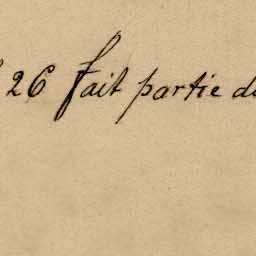 26 fait partie de